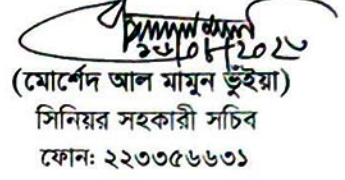 (মোর্শেদ আল মামুন ভুঁইয়া)
সিনিয়র সহকারী সচিব
ফোনঃ ২২৩৩৫৬৬৩১